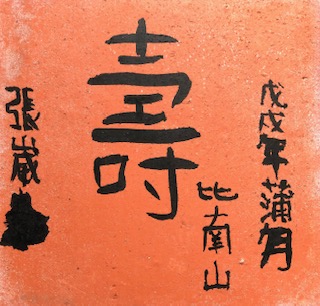 戊戌年蒲月
壽
比南山
張崴